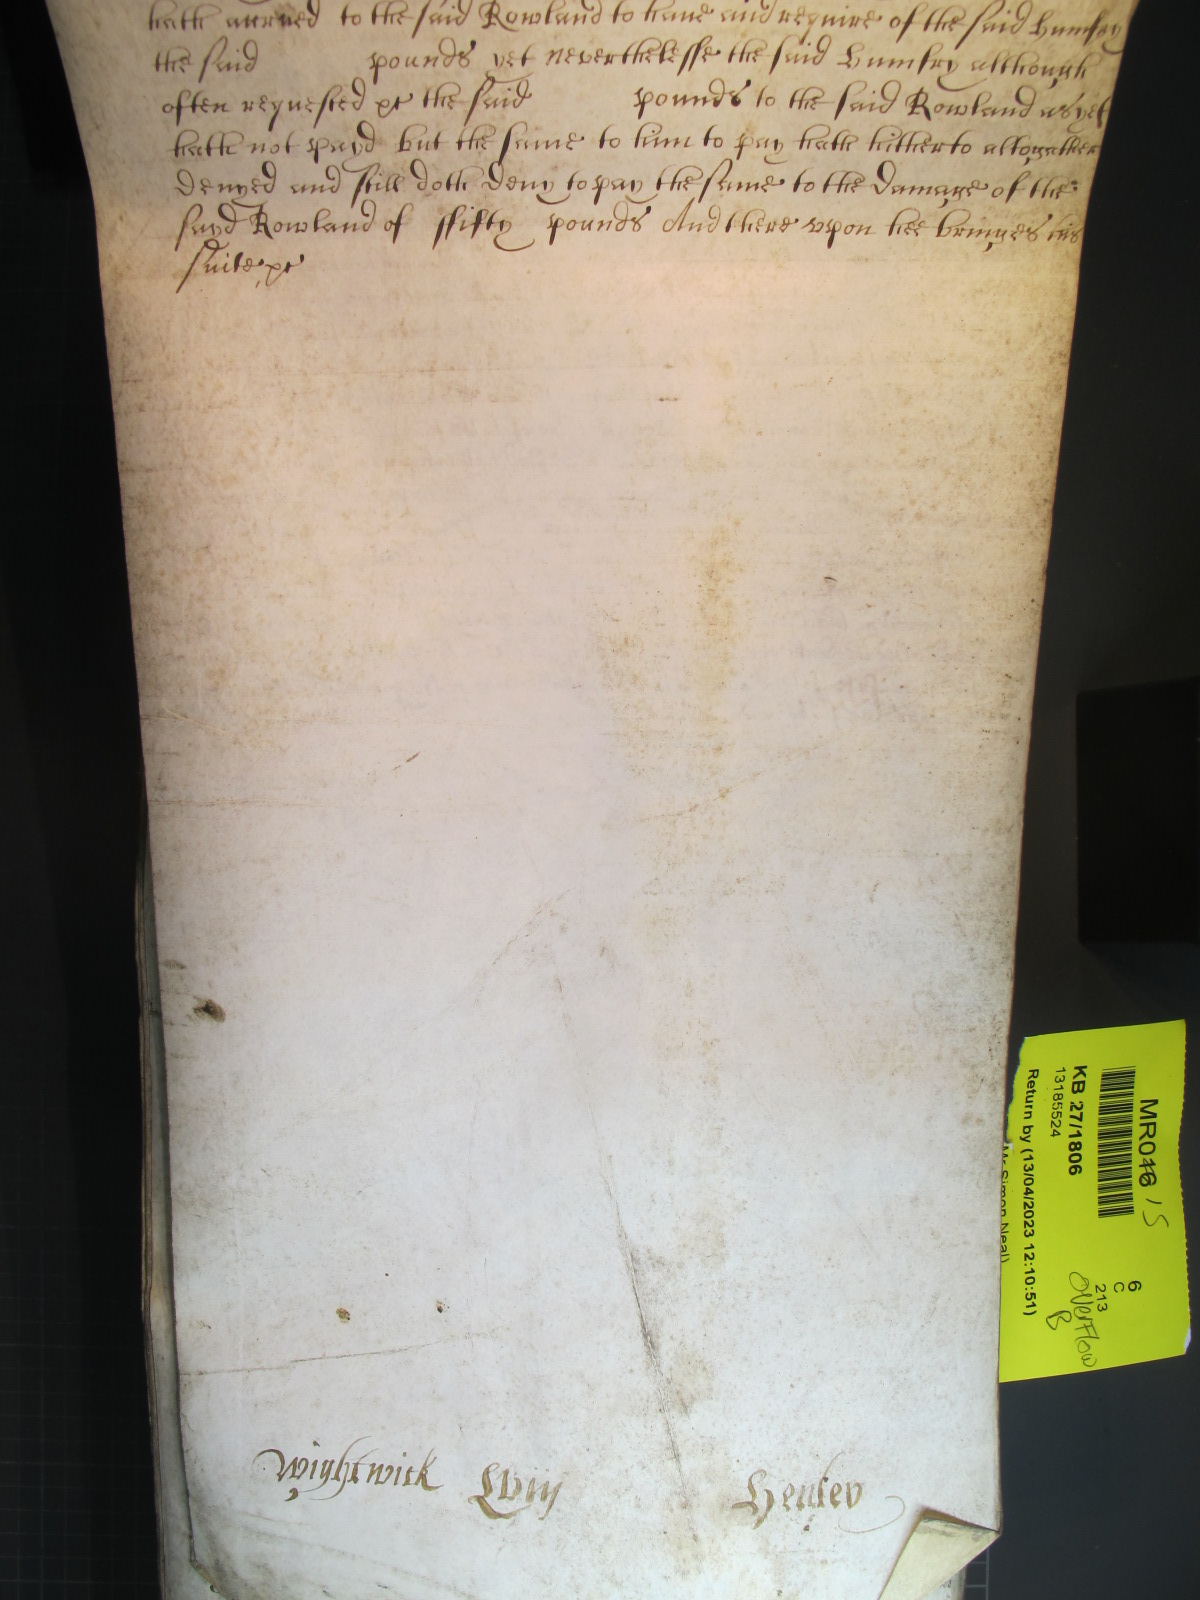 hath accrued to the said Rowland to haue and require of the said Humfry
the said pounds yet neverthelesse the said Humfry although
often requested &c the said pounds to the said Rowland as yet
hath not payd but the same to him to pay hath hitherto altogather
denyed and still doth deny to pay the same to the damage of the
sayd Rowland of ffifty pounds And there vpon hee bringes his
suite &c
Wightwick Lviij Henley
MR046 15
KB 27/1806
13185524
Return by (13/04/2023 12:10:51)
Mr Simon Neal)
6
C
213
Overflow
B